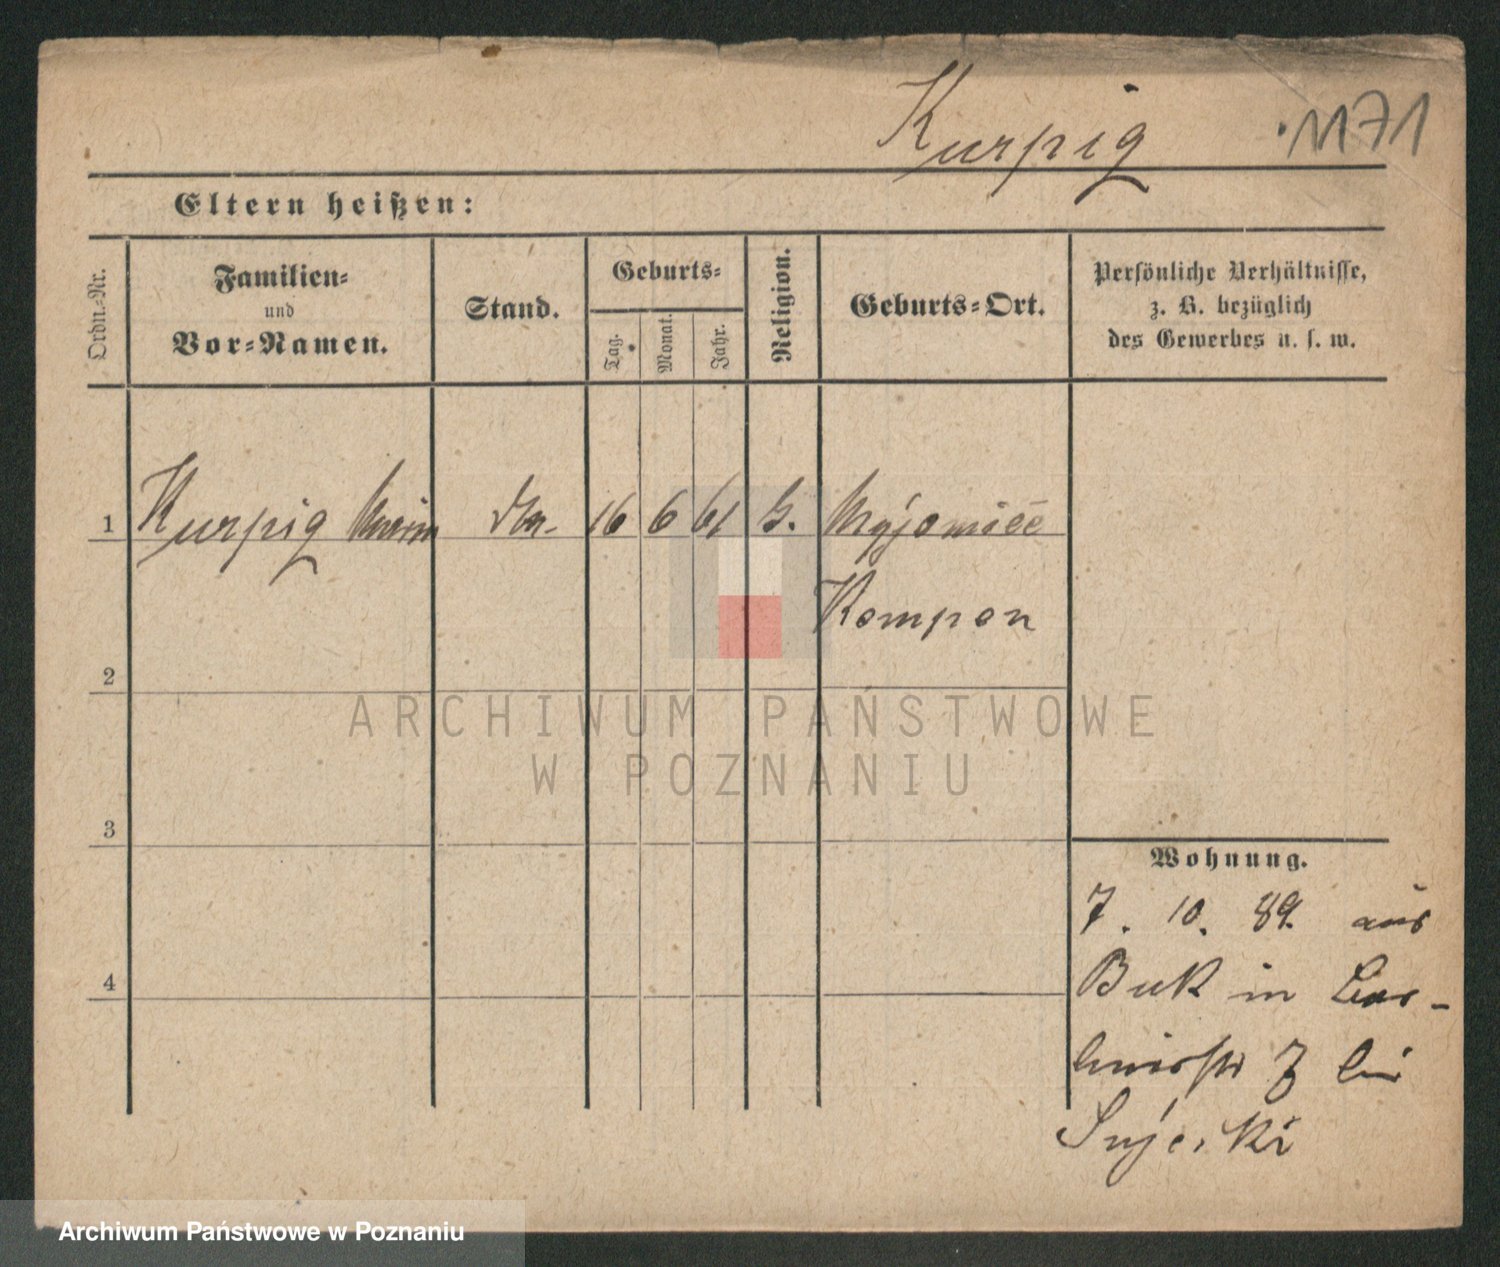 Kurpig 1171
Eltern heißen:
Ordn.-Nr.
Familien-
und
Vor-Namen.
Stand.
Geburts-
Tag.
Monat.
Jahr.
Religion.
Geburts-Ort.
Persönliche Verhältnisse,
z. B. bezüglich
des Gewerbes u. s. w.
1 Kurpig 16 6 61
2
3
4
Wohnung.
7. 10. 89. aus
Buk in
7 bei
ARCHIWUM PAŃSTWOWE
W POZNANIU
Archiwum Państwowe w Poznaniu